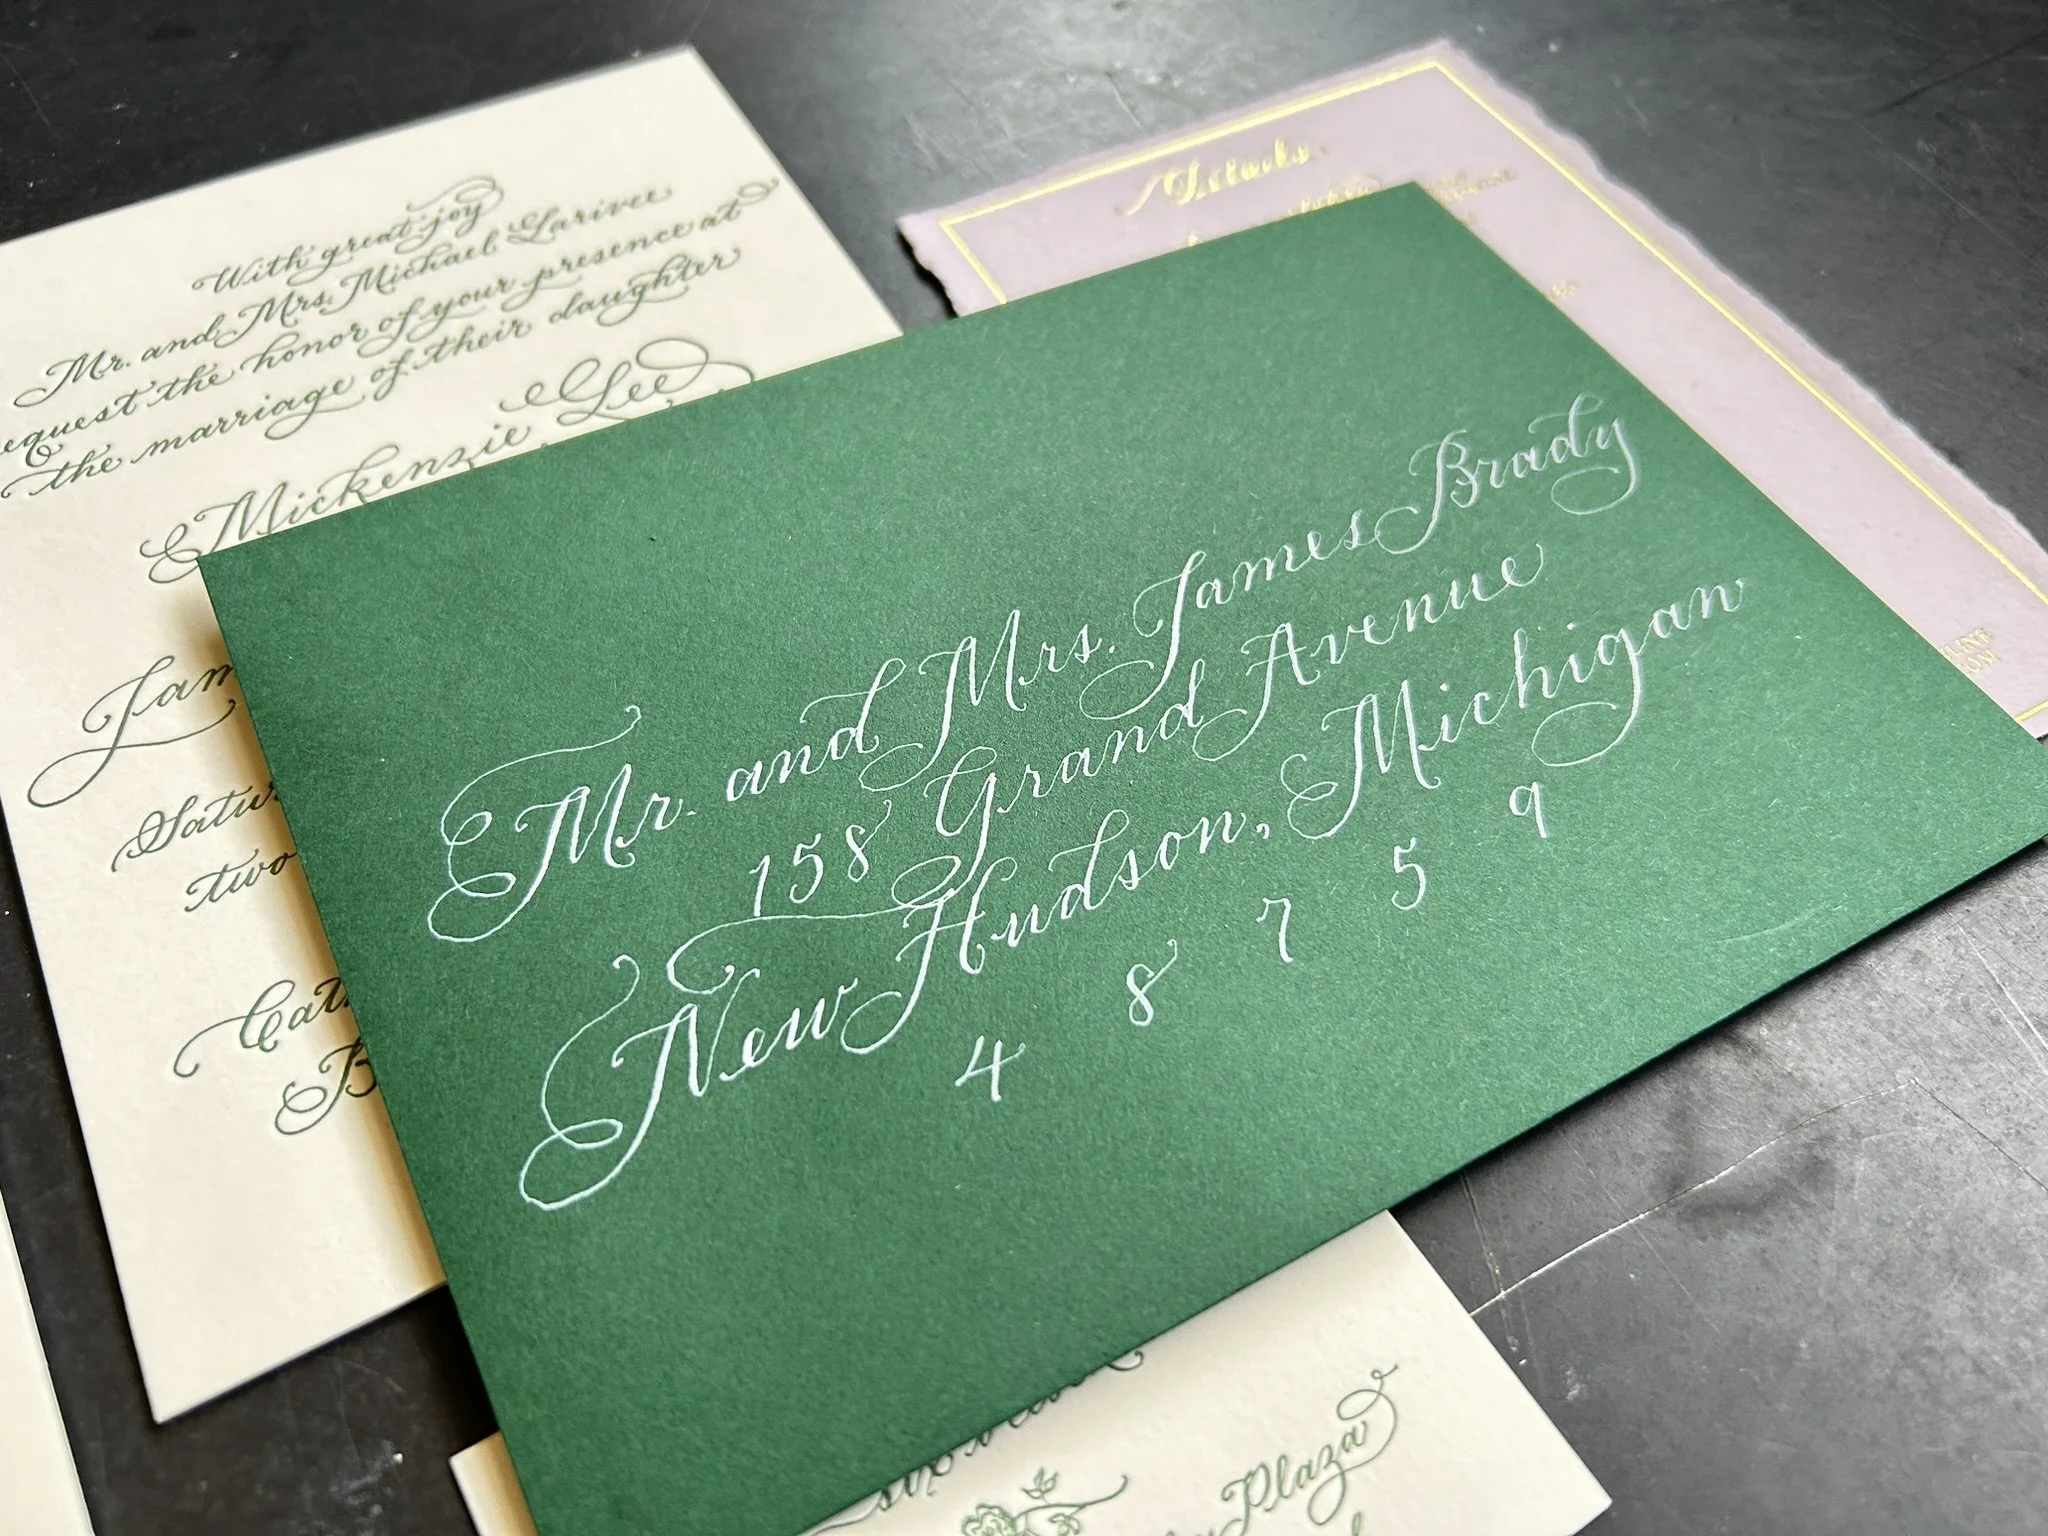 With great joy
Mr. and Mrs. Michael Larivee
request the honor of your presence at
the marriage of their daughter
Mickenzie Lee
Jam
Satur
two
Cath
B
Details
Mr. and Mrs. James Brady
158 Grand Avenue
New Hudson, Michigan
4 8 7 5 9
Plaza